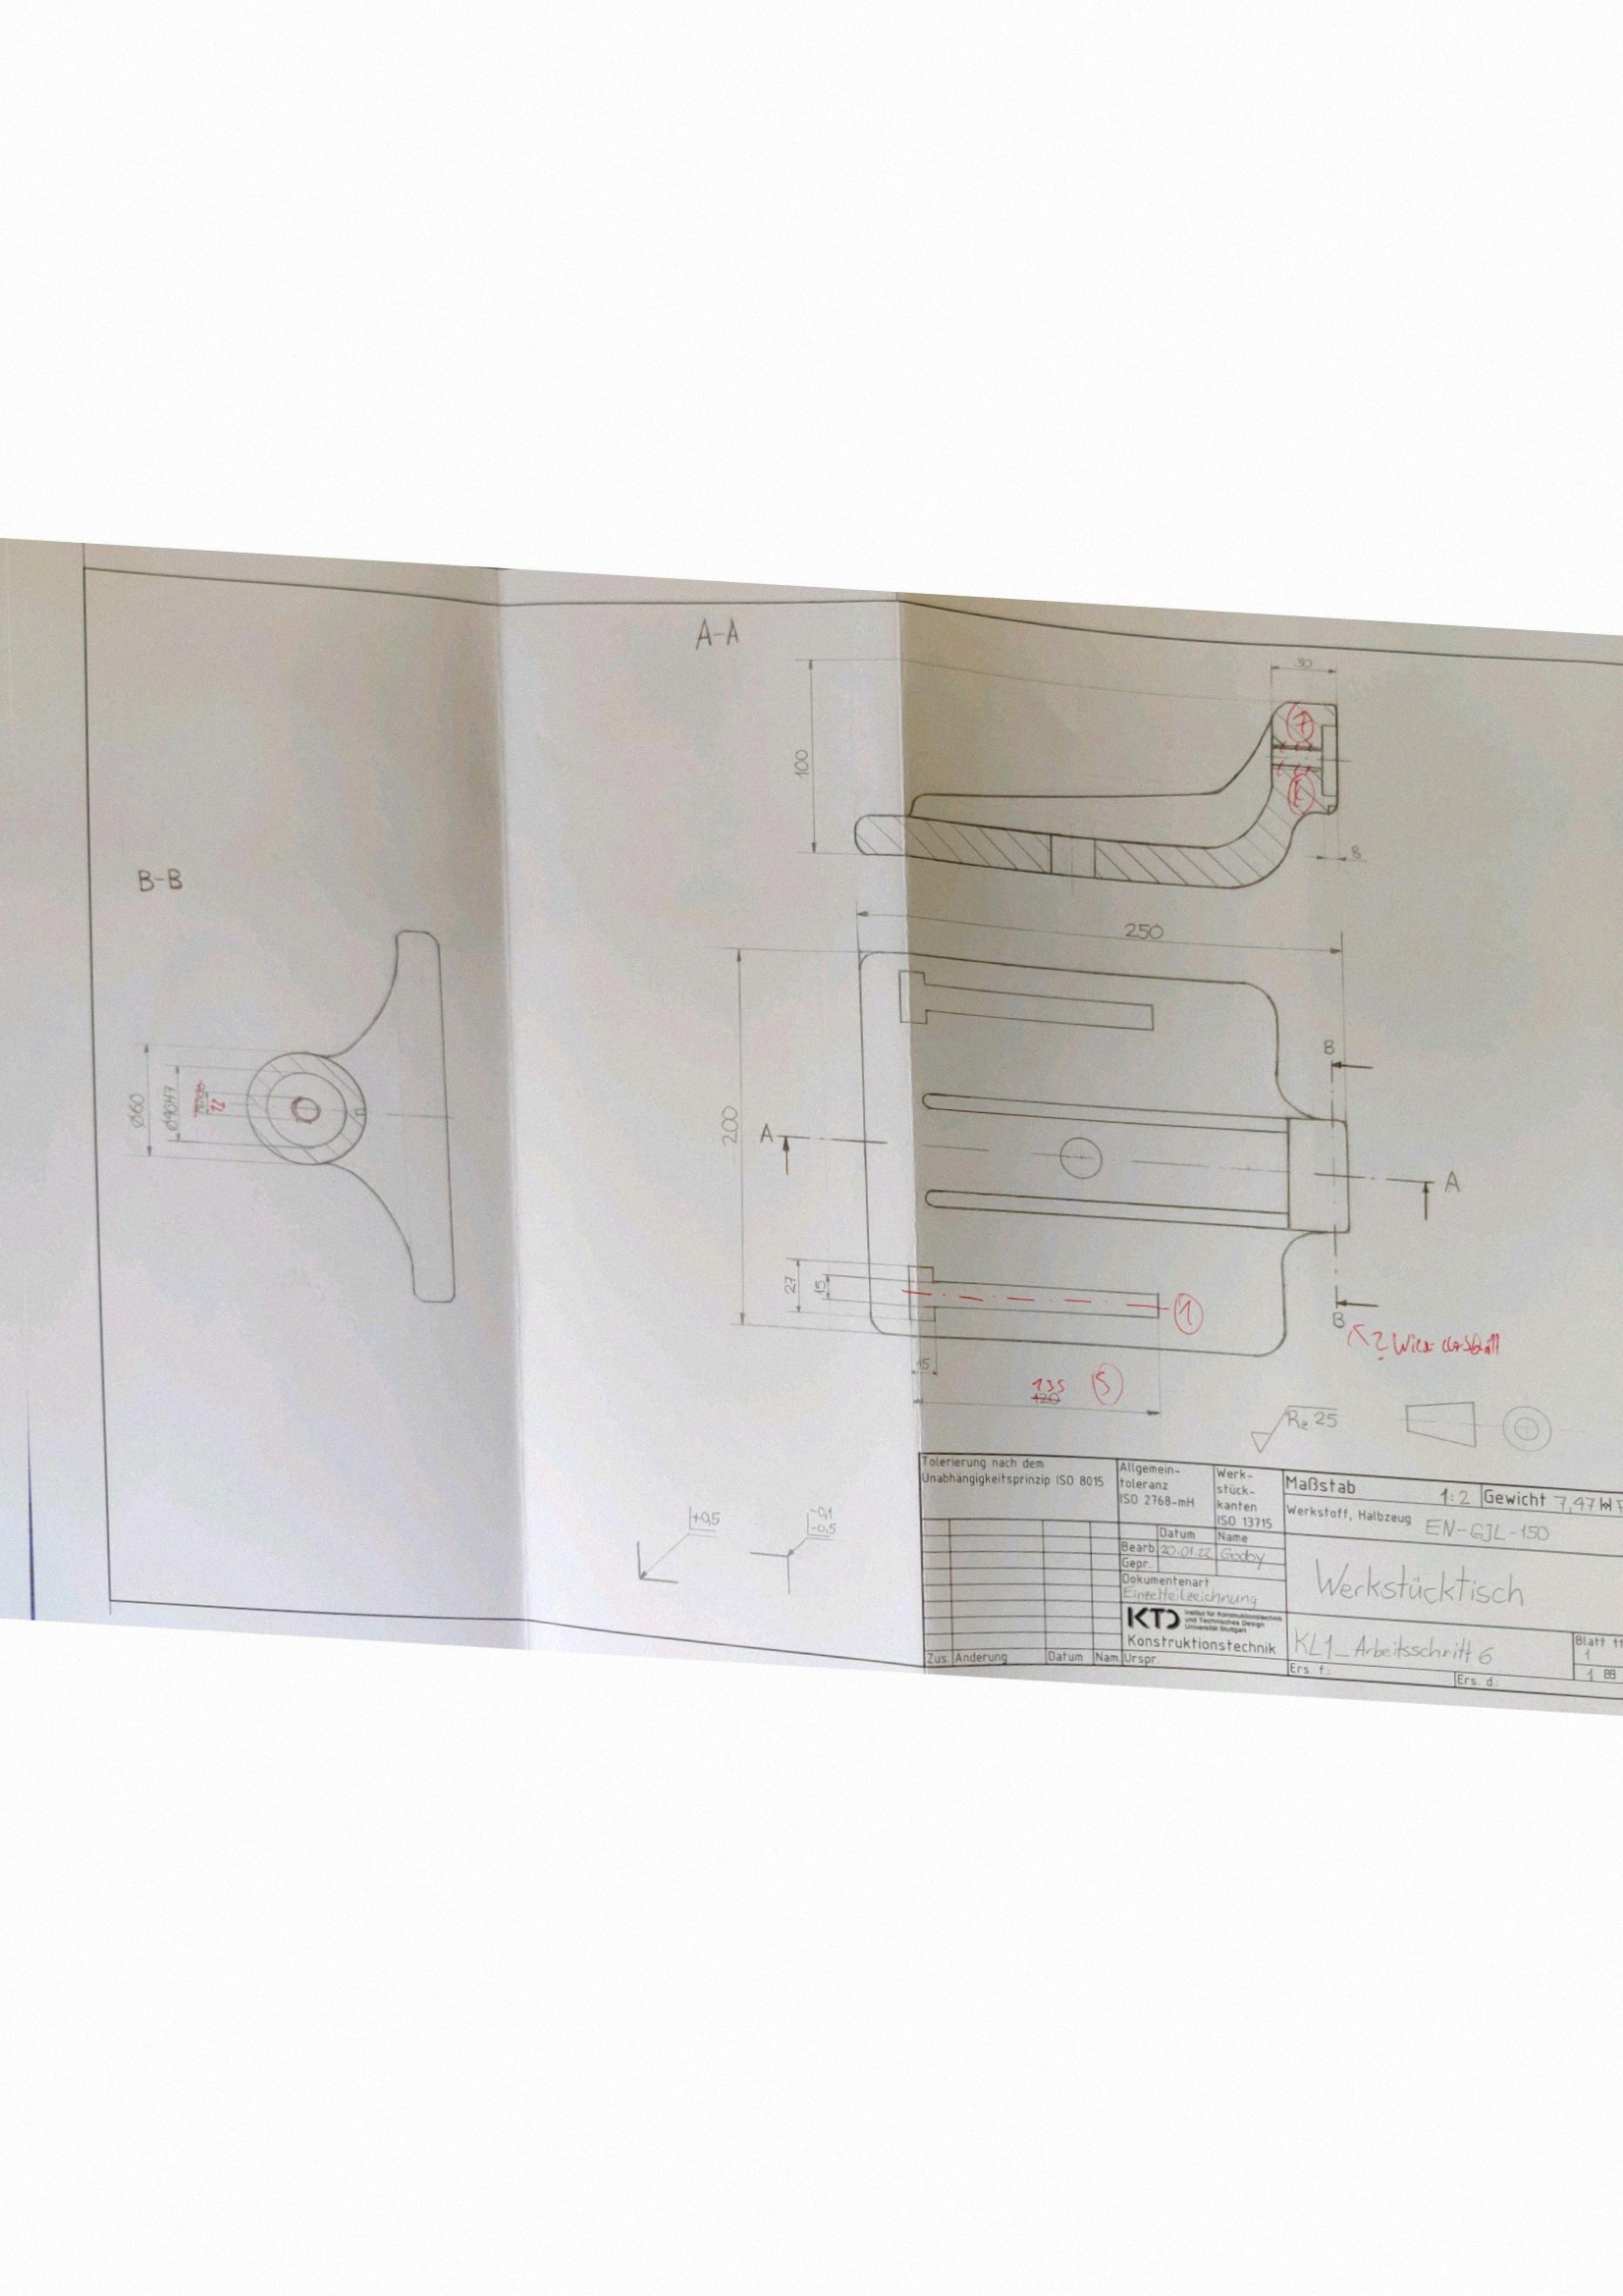 A-A
30
7
100
8
B-B
250
B
Ø60
Ø40H7
200
A
A
27
15
1
B
?
15
135
120
5
Rz 25
+0,5
-0,1
-0,5
Tolerierung nach dem
Unabhängigkeitsprinzip ISO 8015
Allgemein-
toleranz
ISO 2768-mH
Werk-
stück-
kanten
ISO 13715
Maßstab 1:2
Gewicht 7,47
Werkstoff, Halbzeug EN-GJL-150
Datum Name
Bearb. 20.01.22
Gepr.
Dokumentenart
Einzelteilzeichnung
Werkstücktisch
KTD Institut für Konstruktionstechnik
und Technisches Design
Universität Stuttgart
Konstruktionstechnik
KL1_Arbeitsschritt 6
Blatt
1
1
Zus. Änderung Datum Nam. Urspr.
Ers. f.:
Ers. d.: